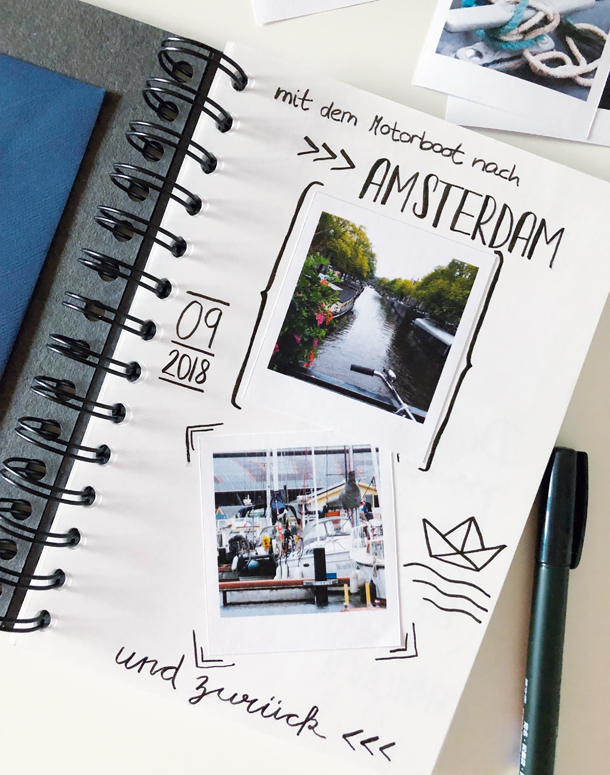 mit dem Motorboot nach
>>> AMSTERDAM
09
2018
und zurück <<<